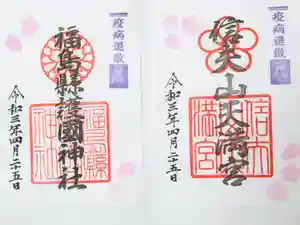 疫病退散
福島縣護國神社
令和三年四月二十五日
疫病退散
信夫山天満宮
令和三年四月二十五日